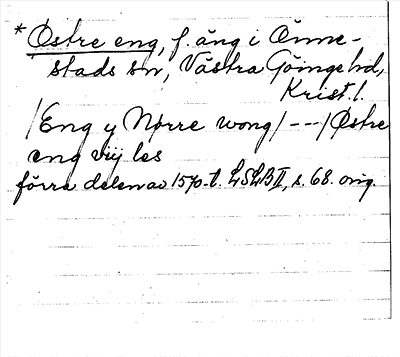 * Östre eng, f. äng i Önne-
stads sn, Västra Göinge hd,
Krist. l.
/Eng y Nørre wong/ -- / Østre
eng viij les
förra delen av 1570-t. LSLB II, s. 68. orig.